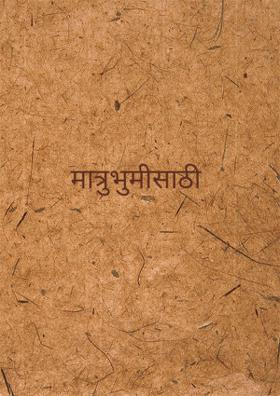 मात्रुभुमीसाठी